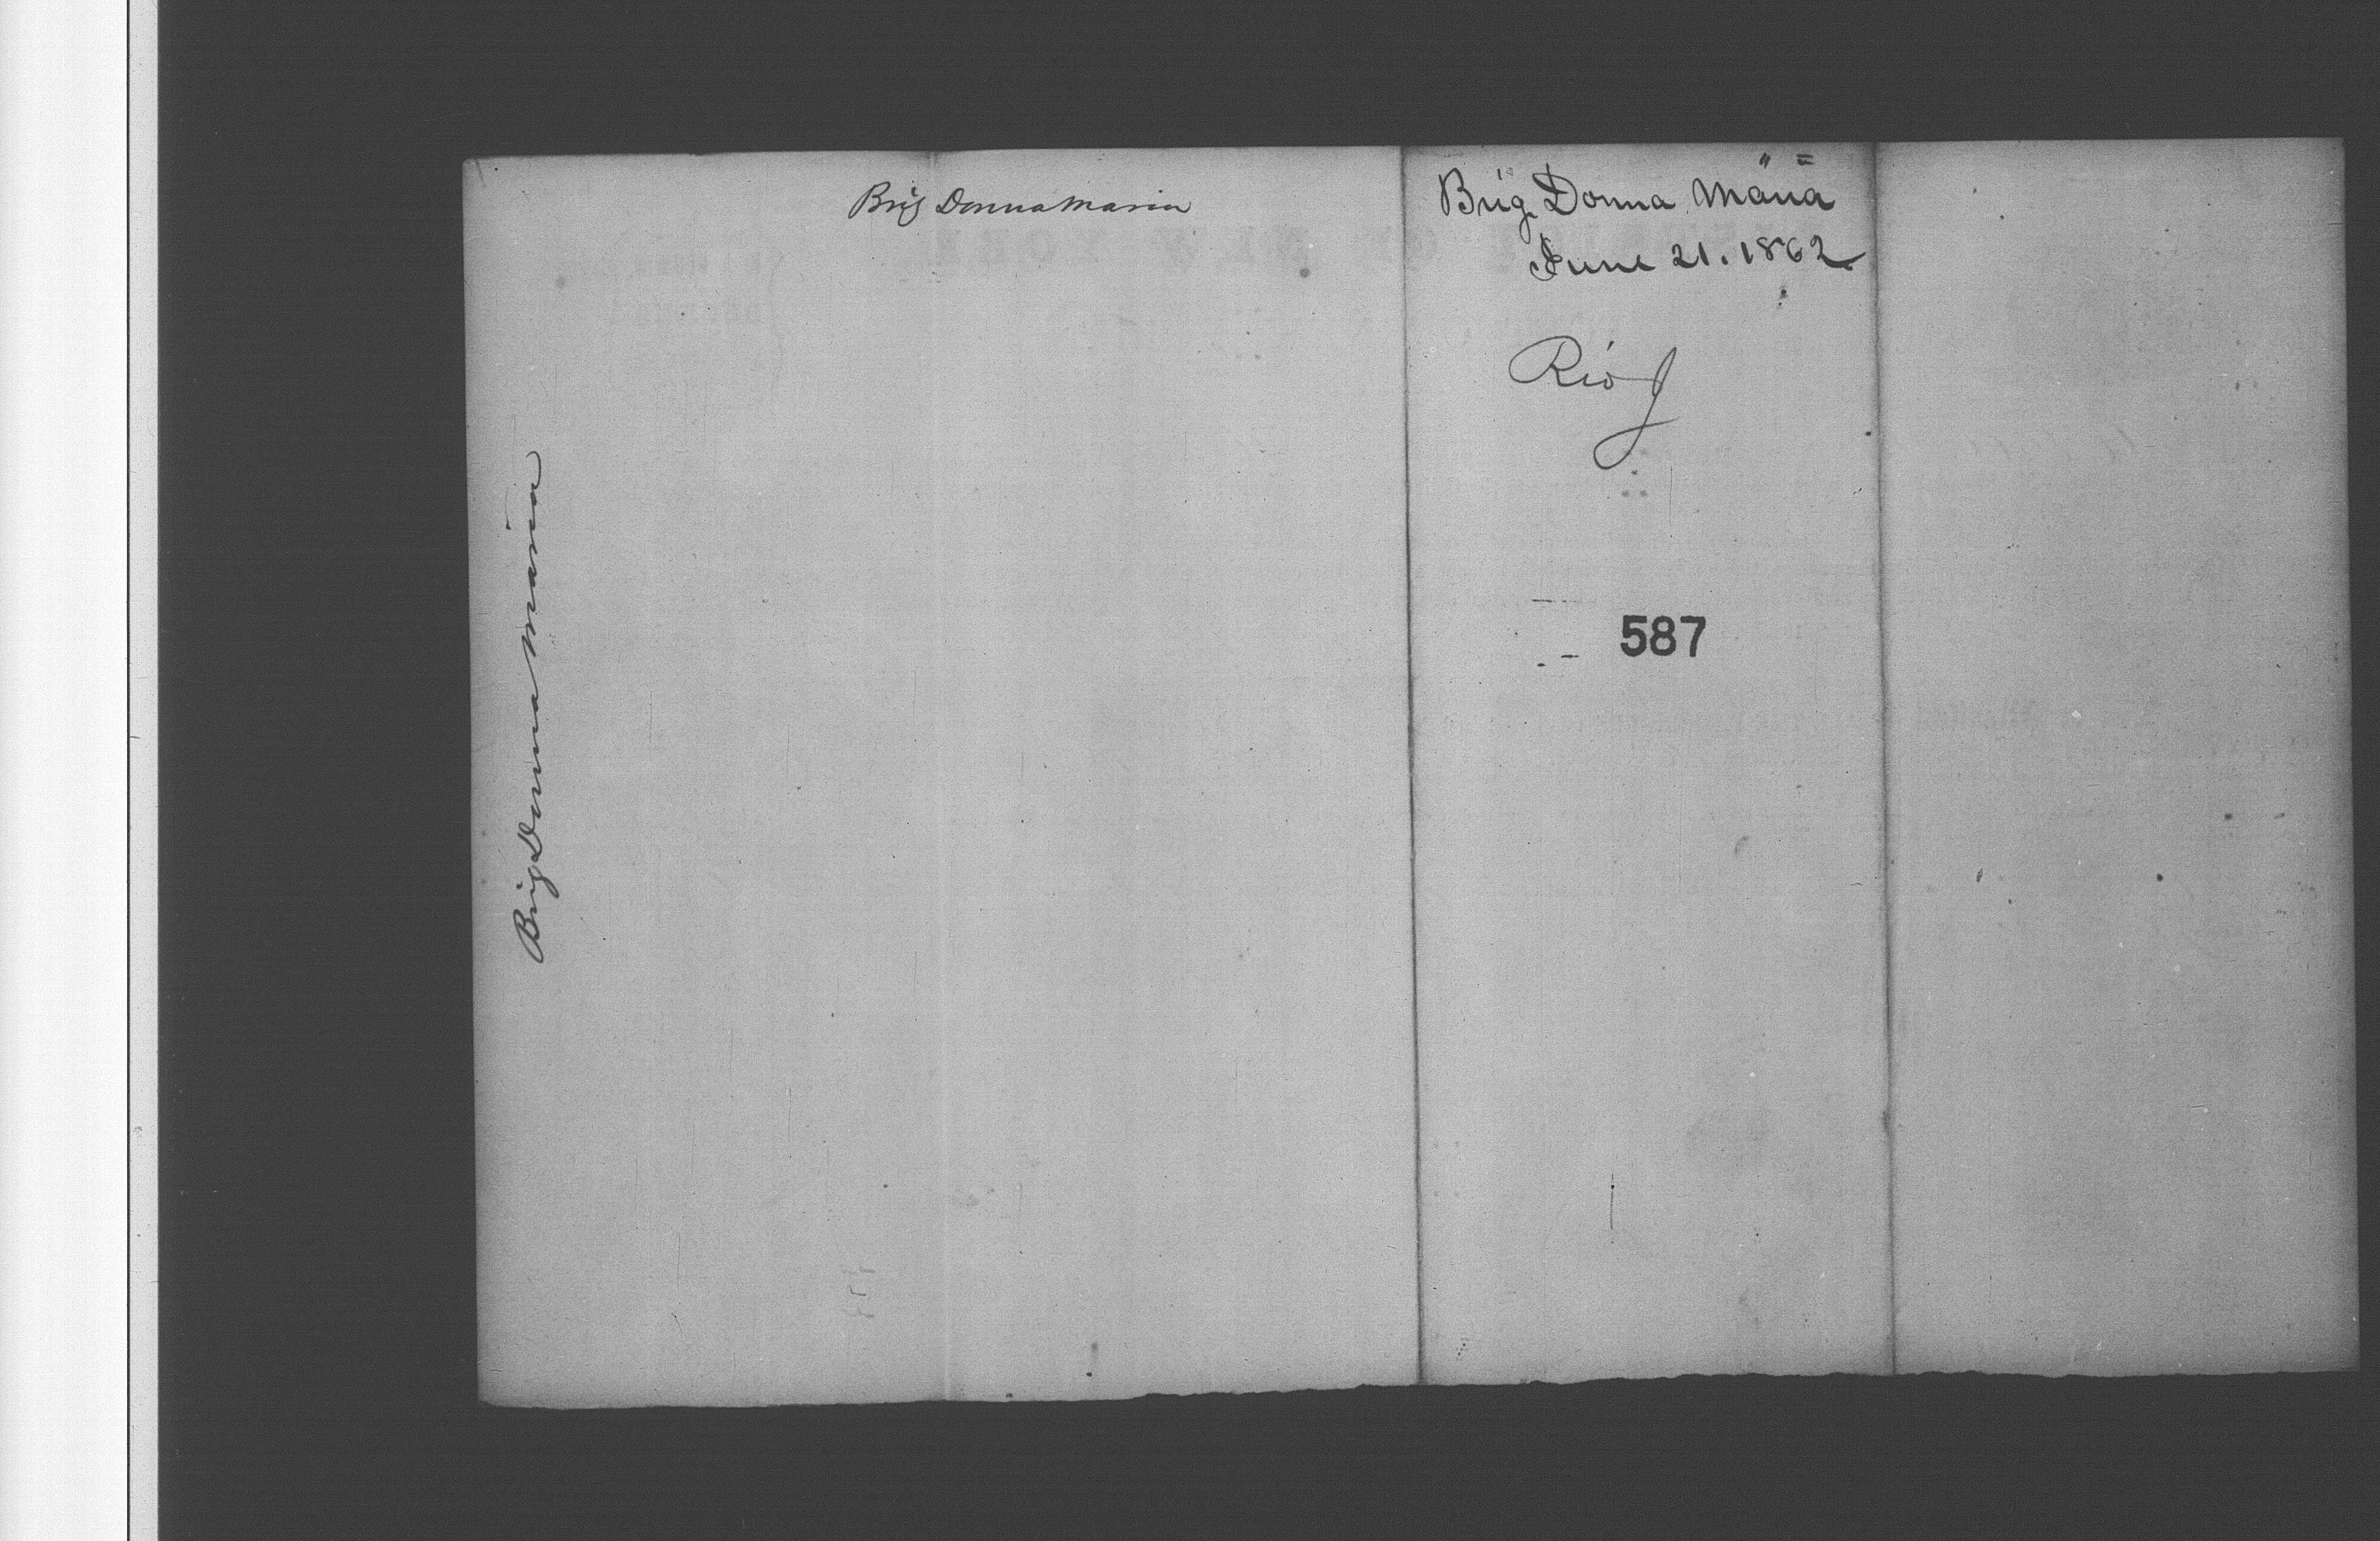 Brig Donna Maria
Brig Donna Maria
Brig Donna Maria
June 21. 1862
Rio J
587